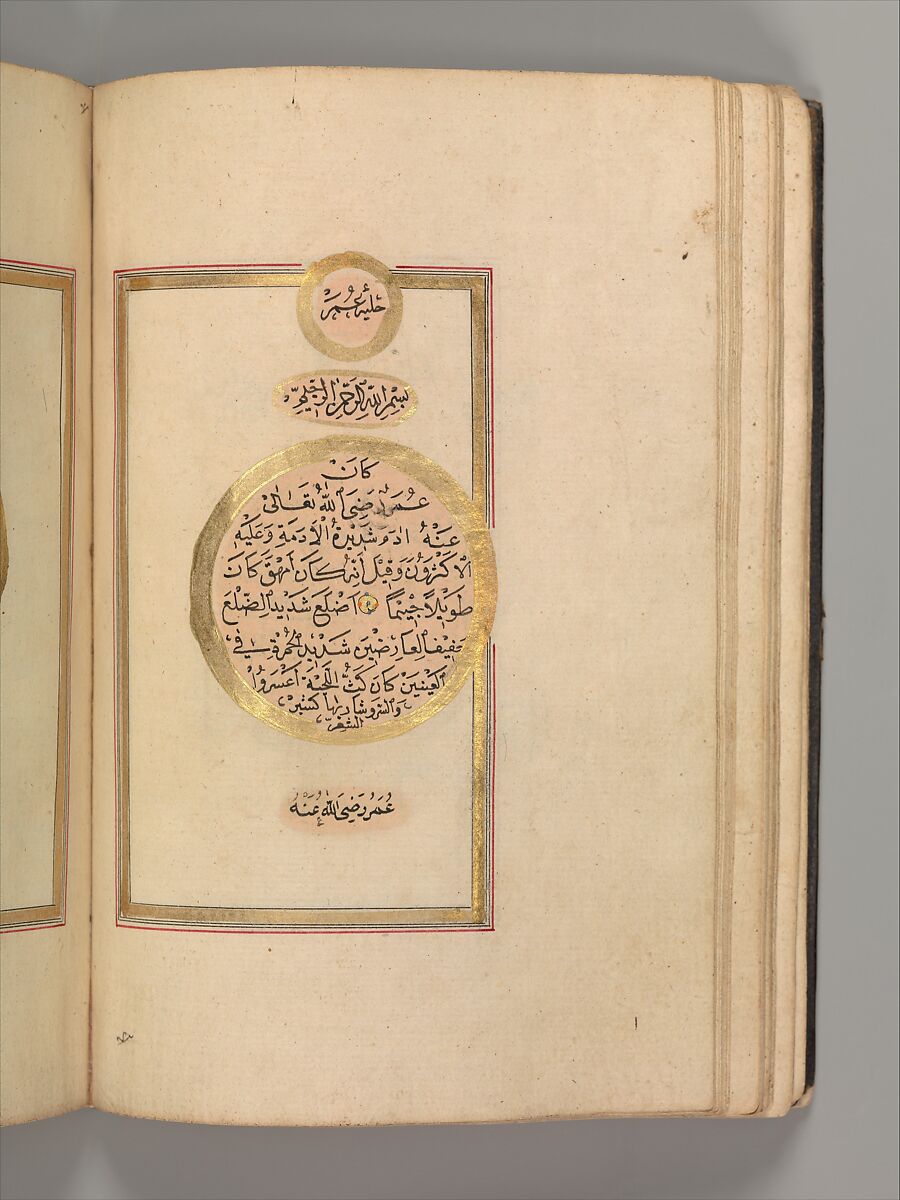 حليه عُمَرَ
بسم الله الرحمن الرحيم
كَانَ
عُمَر رَضِىَ اللّٰهُ تَعَالٰى
عَنْهُ اٰدَم شَدِيدُ الْأَدَمَةِ وَعَلَيْهِ
الْاَكْثَرُونَ وَقِيلَ اَنِّهُ كَانَ اَمْهَقَ كَانَ
طَوِيْلاً جَسِيْمًا اَصْلَعَ شَدِيدَ الصَّلَعِ
خَفِيفَ الْعَارِضَيْنِ شَدِيدَ الْحُمْرَةِ فِى
الْعَيْنَيْنِ كَانَ كَثَّ اللِّحْيَةِ
كثير
الشعر
عُمَر رَضِىَ اللّٰهُ عَنْهُ